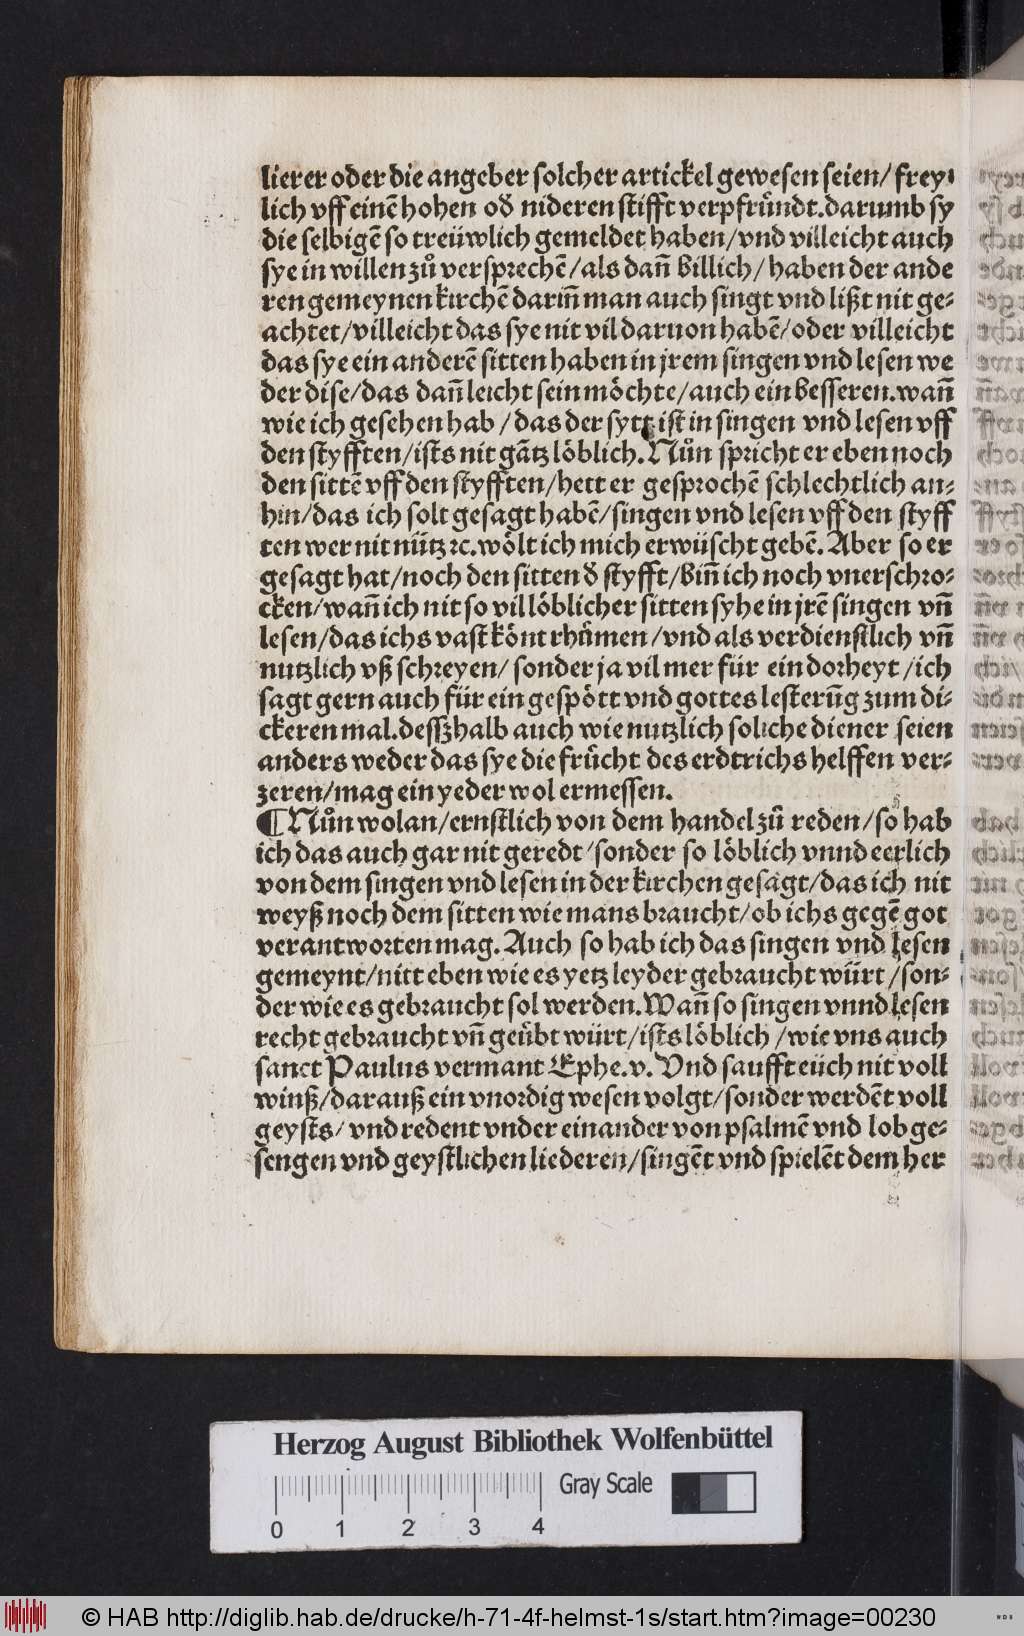 lierer oder die angeber solcher artickel gewesen seien/ frey⸗
lich vff einē hohen od̄ nideren stifft verpfruͦndt. darumb sy
die selbigē so treüwlich gemeldet haben/ vnd villeicht auch
sye in willen zuͦ versprechē/ als dañ billich/ haben der ande
ren gemeynen kirchē dariñ man auch singt vnd lißt nit ge⸗
achtet/ villeicht das sye nit vil daruon habē/ oder villeicht
das sye ein anderē sitten haben in jrem singen vnd lesen we
der dise/ das dañ leicht sein möchte/ auch ein besseren. wañ
wie ich gesehen hab/ das der sytt ist in singen vnd lesen vff
den styfften/ ists nit gātz löblich. Nuͦn spricht er eben noch
den sittē vff den styfften/ hett er gesprochē schlechtlich an⸗
hin/ das ich solt gesagt habē/ singen vnd lesen vff den styff
ten wer nit nütz ꝛc. wölt ich mich erwüscht gebē. Aber so er
gesagt hat/ noch den sitten d̄ styfft/ biñ ich noch vnerschro⸗
cken/ wañ ich nit so vil löblicher sitten syhe in jrē singen vñ
lesen/ das ichs vast könt rhuͤmen/ vnd als verdienstlich vñ
nutzlich vß schreyen/ sonder ja vil mer für ein dorheyt/ ich
sagt gern auch für ein gespött vnd gottes lesterūg zum di⸗
ckeren mal. desszhalb auch wie nutzlich soliche diener seien
anders weder das sye die frücht des erdtrichs helffen ver⸗
zeren/ mag ein yeder wol ermessen.
¶ Nuͦn wolan/ ernstlich von dem handel zuͦ reden/ so hab
ich das auch gar nit geredt/ sonder so löblich vnnd eerlich
von dem singen vnd lesen in der kirchen gesagt/ das ich nit
weyß noch dem sitten wie mans braucht/ ob ichs gegē got
verantworten mag. Auch so hab ich das singen vnd lesen
gemeynt/ nitt eben wie es yetz leyder gebraucht würt/ son⸗
der wie es gebraucht sol werden. Wañ so singen vnnd lesen
recht gebraucht vñ geübt würt/ ists löblich/ wie vns auch
sanct Paulus vermant Ephe. v. Vnd saufft eüch nit voll
winß/ darauß ein vnordig wesen volgt/ sonder werdēt voll
geysts/ vnd redent vnder einander von psalmē vnd lob ge⸗
sengen vnd geystlichen liederen/ singēt vnd spielēt dem her
Herzog August Bibliothek Wolfenbüttel
Gray Scale
0 1 2 3 4
© HAB http://diglib.hab.de/drucke/h-71-4f-helmst-1s/start.htm?image=00230